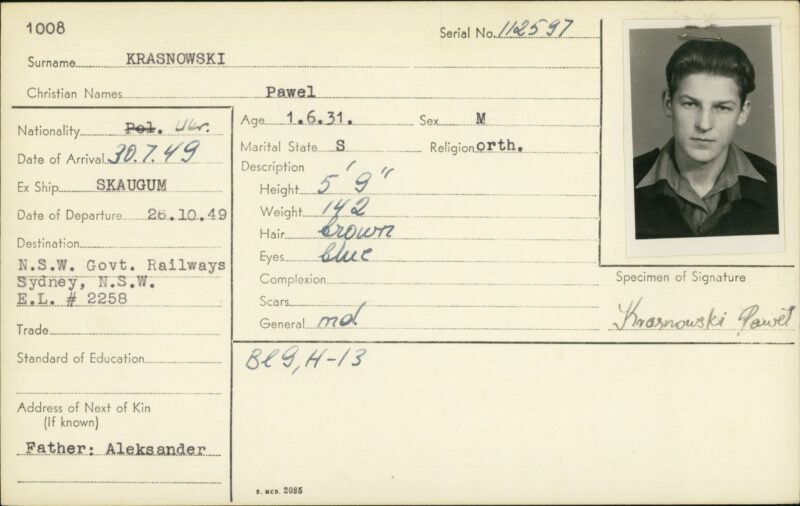 1008
Serial No. 112597
Surname KRASNOWSKI
Christian Names Pawel
Nationality Pol. Ukr.
Date of Arrival 30.7.49
Ex Ship SKAUGUM
Date of Departure 26.10.49
Destination
N.S.W. Govt. Railways
Sydney, N.S.W.
E.L. # 2258
Trade
Standard of Education
Address of Next of Kin
(If known)
Father: Aleksander
Age 1.6.31. Sex M
Marital State S Religion orth.
Description
Height 5' 9"
Weight 142
Hair brown
Eyes blue
Complexion
Scars
General md
Bl 9, H-13
S. MCD. 2085
Specimen of Signature
Krasnowski Paweł